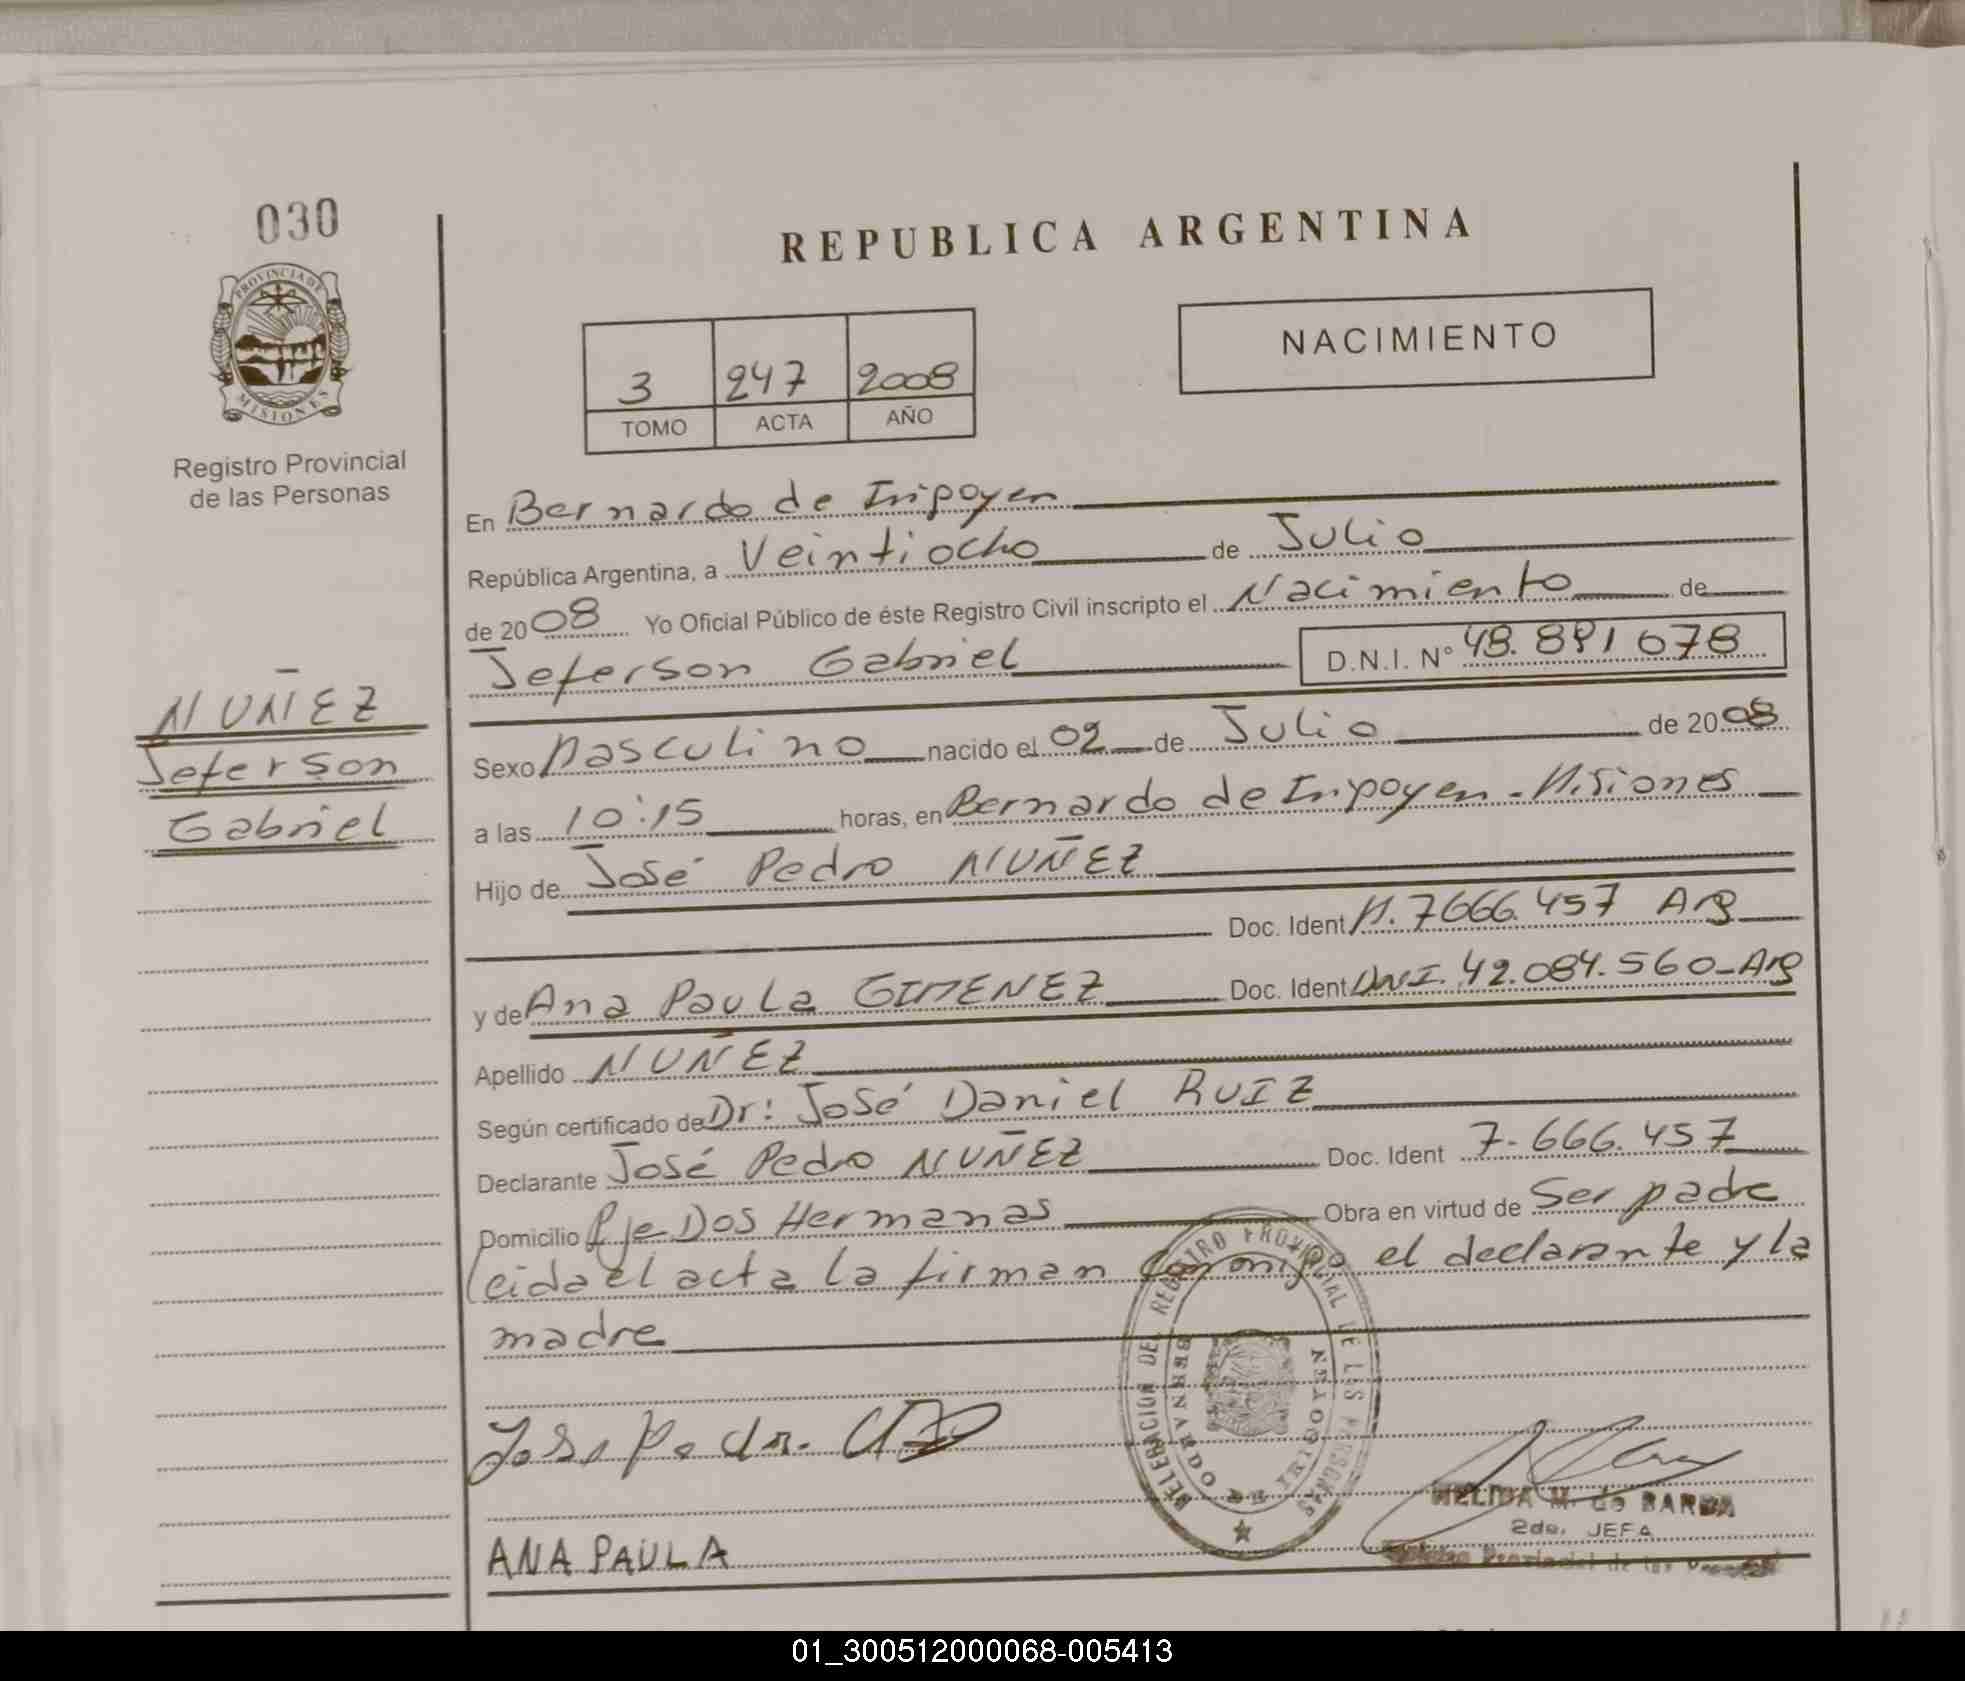 030
REPUBLICA ARGENTINA
PROVINCIA DE
MISIONES
NACIMIENTO
3 247 2008
TOMO ACTA AÑO
Registro Provincial
de las Personas
En Bernardo de Irigoyen
República Argentina, a Veintiocho de Julio
de 2008 Yo Oficial Público de éste Registro Civil inscripto el Nacimiento de
Jeferson Gabriel D.N.I. N° 48.891 078
NUÑEZ
Jeferson
Gabriel
Sexo Masculino nacido el 02 de Julio de 2008
a las 10:15 horas, en Bernardo de Irigoyen - Misiones
Hijo de José Pedro NUÑEZ
Doc. Ident M. 7666.457 Arg
y de Ana Paula GIMENEZ Doc. Ident DNI. 42.084.560-Arg
Apellido NUÑEZ
Según certificado de Dr: José Daniel RUIZ
Declarante José Pedro NUÑEZ Doc. Ident 7.666.457
Domicilio Pje Dos Hermanas Obra en virtud de Ser padre
leida el acta la firman conmigo el declarante y la
madre
DELEGACION DEL REGISTRO PROVINCIAL DE LAS PERSONAS
BERNARDO DE IRIGOYEN
José Pedro
M. de BARBA
2da. JEFA
Provincial de las
ANA PAULA
01_300512000068-005413